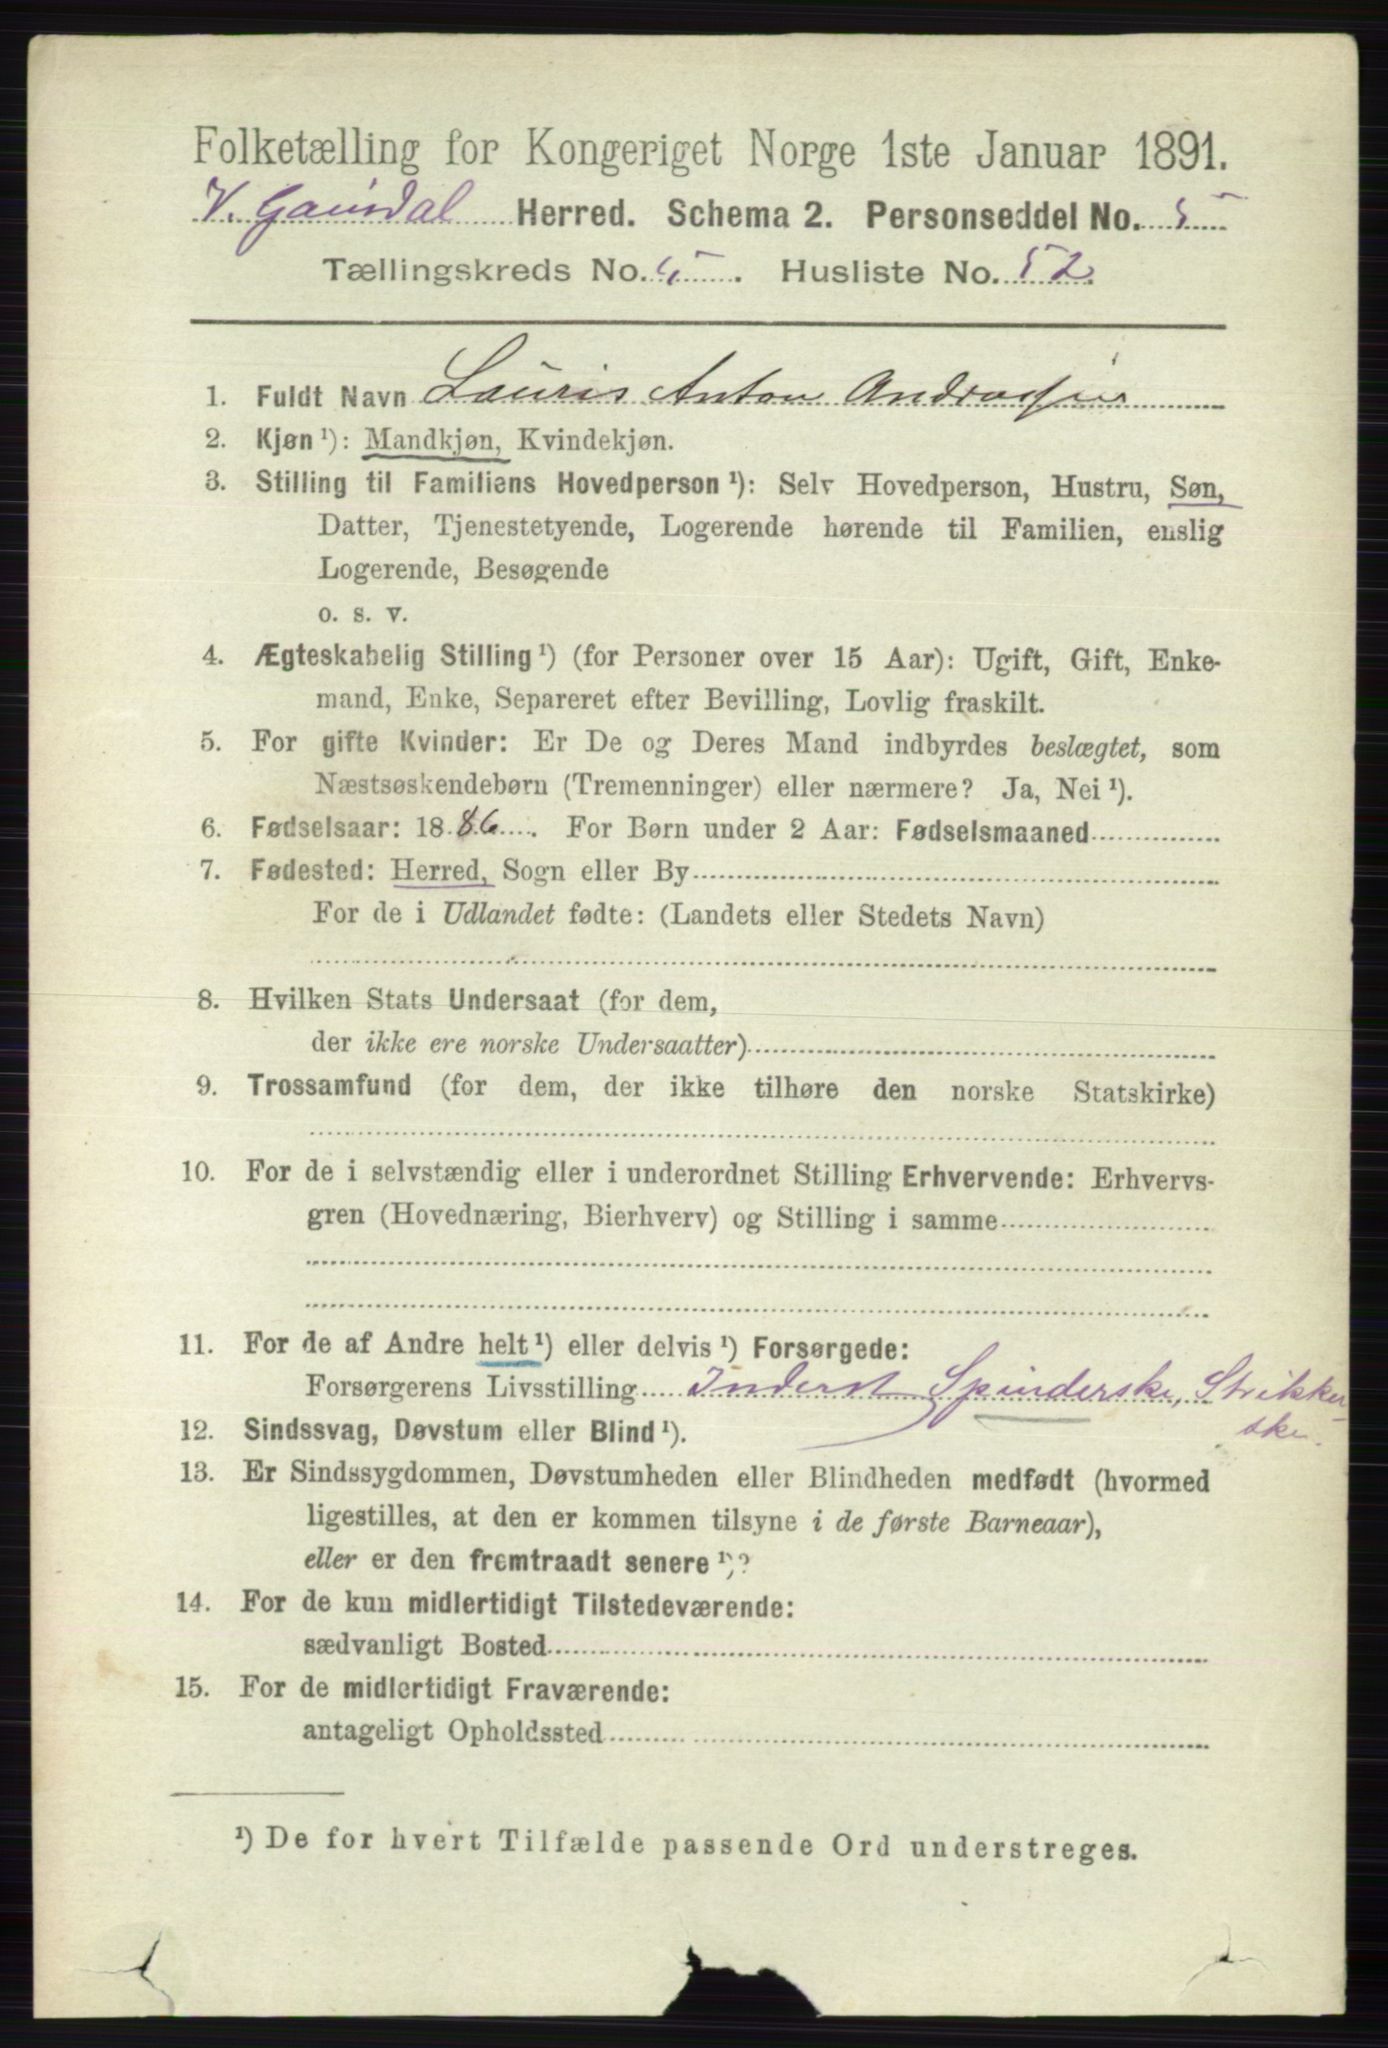 Folketælling for Kongeriget Norge 1ste Januar 1891.
V. Gausdal Herred. Schema 2. Personseddel No. 5
Tællingskreds No. 5. Husliste No. 52.
1. Fuldt Navn Lauris Anton
2. Kjøn¹): Mandkjøn, Kvindekjøn.
3. Stilling til Familiens Hovedperson¹): Selv Hovedperson, Hustru, Søn,
Datter, Tjenestetyende, Logerende hørende til Familien, enslig
Logerende, Besøgende
o. s. v.
4. Ægteskabelig Stilling¹) (for Personer over 15 Aar): Ugift, Gift, Enke-
mand, Enke, Separeret efter Bevilling, Lovlig fraskilt.
5. For gifte Kvinder: Er De og Deres Mand indbyrdes beslægtet, som
Næstsøskendebørn (Tremenninger) eller nærmere? Ja, Nei¹).
6. Fødselsaar: 1886. For Børn under 2 Aar: Fødselsmaaned
7. Fødested: Herred, Sogn eller By
For de i Udlandet fødte: (Landets eller Stedets Navn)
8. Hvilken Stats Undersaat (for dem,
der ikke ere norske Undersaatter)
9. Trossamfund (for dem, der ikke tilhøre den norske Statskirke)
10. For de i selvstændig eller i underordnet Stilling Erhvervende: Erhvervs-
gren (Hovednæring, Bierhverv) og Stilling i samme
11. For de af Andre helt¹) eller delvis¹) Forsørgede:
Forsørgerens Livsstilling Inderst Spinderske, Strikker-
ske.
12. Sindssvag, Døvstum eller Blind¹).
13. Er Sindssygdommen, Døvstumheden eller Blindheden medfødt (hvormed
ligestilles, at den er kommen tilsyne i de første Barneaar),
eller er den fremtraadt senere¹)?
14. For de kun midlertidigt Tilstedeværende:
sædvanligt Bosted
15. For de midlertidigt Fraværende:
antageligt Opholdssted
¹) De for hvert Tilfælde passende Ord understreges.